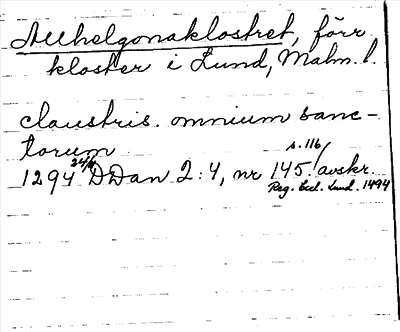 Allhelgonaklostret, förr
kloster i Lund, Malm. l.
claustris. omnium sanc-
torum
1294 24/4 DDan 2:4, nr 145, s. 116, avskr.
Reg. Eccl. Lund. 1494